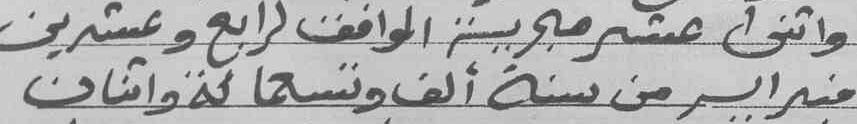 واثنى عشر هجرية الموافق لرابع وعشرين
فبراير من سنة ألف وتسعمائة واثنان